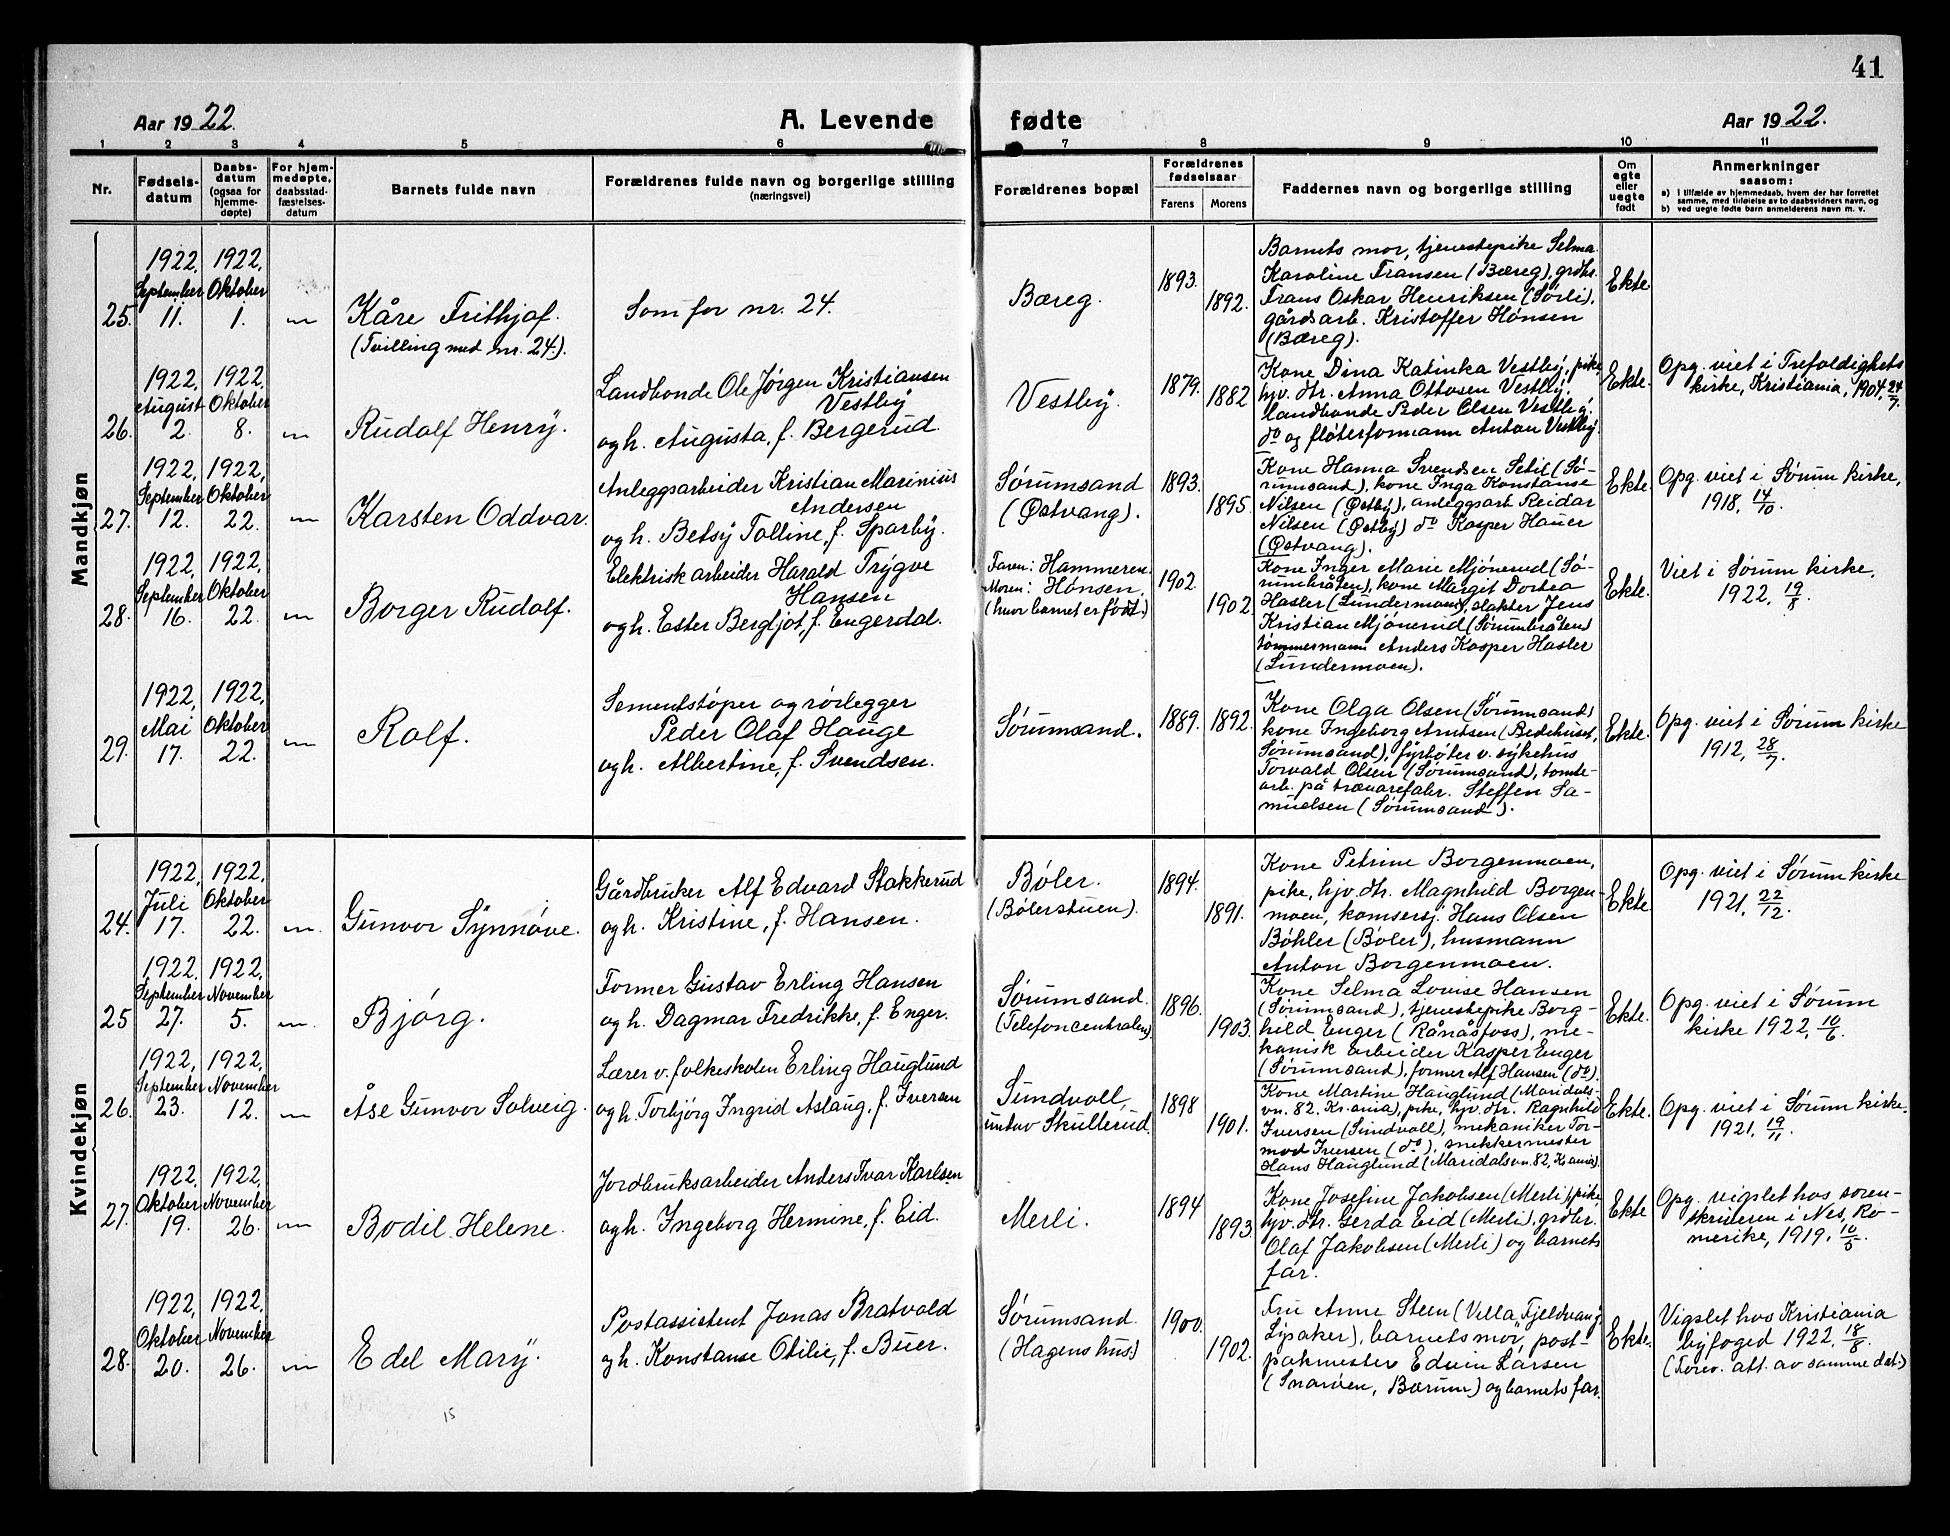 41
Aar 1922.
A. Levende fødte
Aar 1922.
1 2 3 4 5 6 7 8 9 10 11
Nr.
Fødsels-
datum
Daabs-
datum
(ogsaa for
hjemme-
døpte)
For hjem-
medøpte,
daabsstad-
fæstelses-
datum
Barnets fulde navn
Forældrenes fulde navn og borgerlige stilling
(næringsvei)
Forældrenes bopæl
Forældrenes
fødselsaar
Farens. Morens.
Faddernes navn og borgerlige stilling
Om
egte
eller
uegte
født
Anmerkninger
saasom:
a) i tilfælde av hjemmedaab, hvem der har forrettet
samme, med tilføielse av to daabsvidners navn, og
b) ved uegte fødte barn anmelderens navn m. v.
Mandkjøn
25.
1922, September 11.
1922, Oktober 1.
Kåre Frithjof.
(Tvilling med nr. 24.).
Som for nr. 24.
Bæreg.
1893.
1892.
Barnets mor, tjenestepike Selma
Karoline Fransen (Bæreg), grdbr.
Frans Oskar Henriksen (Sørli),
gårdsarb. Kristoffer Hønsen
(Bæreg).
Ekte
26.
1922, August 2.
1922, Oktober 8.
Rudolf Henry.
Landbonde Ole Jørgen Kristiansen
Vestby
og h. Augusta, f. Bergerud.
Vestby.
1879.
1882
Kone Dina Katinka Vestby, pike,
hjv. dtr. Anna Ottosen Vestby,
landbonde Peder Olsen Vestby,
do og fløterformann Anton Vestby.
Ekte.
Opg. viet i Trefoldighets
kirke, Kristiania, 1904, 24/7.
27.
1922, September 12.
1922, Oktober 22.
Karsten Oddvar.
Anleggsarbeider Kristian Marinius
Andersen
og h. Betsy Tolline, f. Sparby.
Sørumsand
(Østvang).
1893.
1895.
Kone Hanna Svendsen Setil (Sø-
rumsand), kone Inga Konstanse
Nilsen (Østby), anleggsarb. Reidar
Nilsen (Østby) do Kasper Hauer
(Østvang).
Ekte.
Opg. viet i Sørum kirke,
1918, 14/10.
28.
1922, September 16.
1922, Oktober 22.
Borger Rudolf.
Elektrisk arbeider Harald Trygve
Hansen
og h. Ester Bergljot, f. Engerdal.
Faren: Hammeren.
Moren: Hønsen,
(hvor barnet er født.)
1902.
1902.
Kone Inger Marie Mjønerud (Sø-
rumbråten), kone Margit Dortea
Hasler (Lundermoen), slakter Jens
Kristian Mjønerud (Sørumbråten)
tømmermann Anders Kasper Hasler
(Lundermoen).
Ekte.
Viet i Sørum kirke,
1922, 19/8.
29.
1922, Mai 17.
1922, Oktober 22.
Rolf.
Sementstøper og rørlegger
Peder Olaf Hauge
og h. Albertine, f. Svendsen.
Sørumsand.
1889.
1892.
Kone Olga Olsen (Sørumsand)
kone Ingeborg Arntsen (Bedehuset,
Sørumsand), fyrbøter v. sykehus
Torvald Olsen (Sørumsand), tomte-
arb. på trævarefabr. Steffen Sa-
muelsen (Sørumsand).
Ekte.
Opg. viet i Sørum kirke
1912, 28/7.
Kvindekjøn
24.
1922, Juli 17.
1922, Oktober 22.
Gunvor Synnøve.
Gårdbruker Alf Edvard Stakkerud
og h. Kristine, f. Hansen.
Bøler.
(Bølerstuen).
1894.
1891.
Kone Petrine Borgenmoen,
pike, hjv. dtr. Magnhild Borgen-
moen, Hans Olsen
Bøhler (Bøler), husmann
Anton Borgenmoen.
Ekte
Opg. viet i Sørum kirke
1921, 22/12.
25
1922, September 27.
1922, November 5.
Bjørg.
Former Gustav Erling Hansen
og h. Dagmar Fredrikke, f. Enger.
Sørumsand.
(Telefoncentralen)
1896.
1903.
Kone Selma Lovise Hansen
(Sørumsand), tjenestepike Borg-
hild Enger (Rånåsfoss), me-
kanisk arbeider Kasper Enger
(Sørumsand), former Alf Hansen (do).
Ekte.
Opg. viet i Sørum
kirke 1922, 10/6.
26.
1922, September 23.
1922, November 12.
Åse Gunvor Solveig.
Lærer v. folkeskolen Erling Hauglund
og h. Torbjørg Ingrid Aslaug, f. Iversen
Sundvoll,
Skullerud.
1898
1901.
Kone Martine Hauglund (Maridals-
vn. 82, Kr.ania), pike, hjv. dtr. Ragnhild
Iversen (Sundvoll), mekaniker Tor-
mod Iversen (do), snekkermester
Hans Hauglund (Maridalsvn. 82, Kr.ania).
Ekte.
Opg. viet i Sørum kirke.
1921, 19/11.
27.
1922, Oktober 19.
1922, November 26.
Bodil Helene.
Jordbruksarbeider Anders Ivar Karlsen
og h. Ingeborg Hermine, f. Eid.
Merli.
1894
1893.
Kone Josefine Jakobsen (Merli), pike,
hjv. dtr. Gerda Eid (Merli), grdbr.
Olaf Jakobsen (Merli) og barnets
far.
Ekte
Opg. vigslet hos soren-
skriveren i Nes, Ro-
merike, 1919, 10/5.
28.
1922, Oktober 20.
1922, November 26.
Edel Mary.
Postassistent Jonas Bratvold
og h. Konstanse Otilie, f. Buer.
Sørumsand.
(Hagens hus.)
1900.
1902.
Fru Anne Steen (Villa Fjeldvang,
Lysaker), barnets mor, post-
pakmester Edvin Larsen
(Snarøen, Bærum) og barnets far.
Ekte.
Vigslet hos Kristiania
byfoged 1922, 18/8.
(Forev. att. av samme dat.)
15